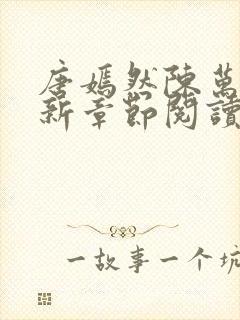 唐嫣然陳萬
新章節閱讀
一故事一个坑